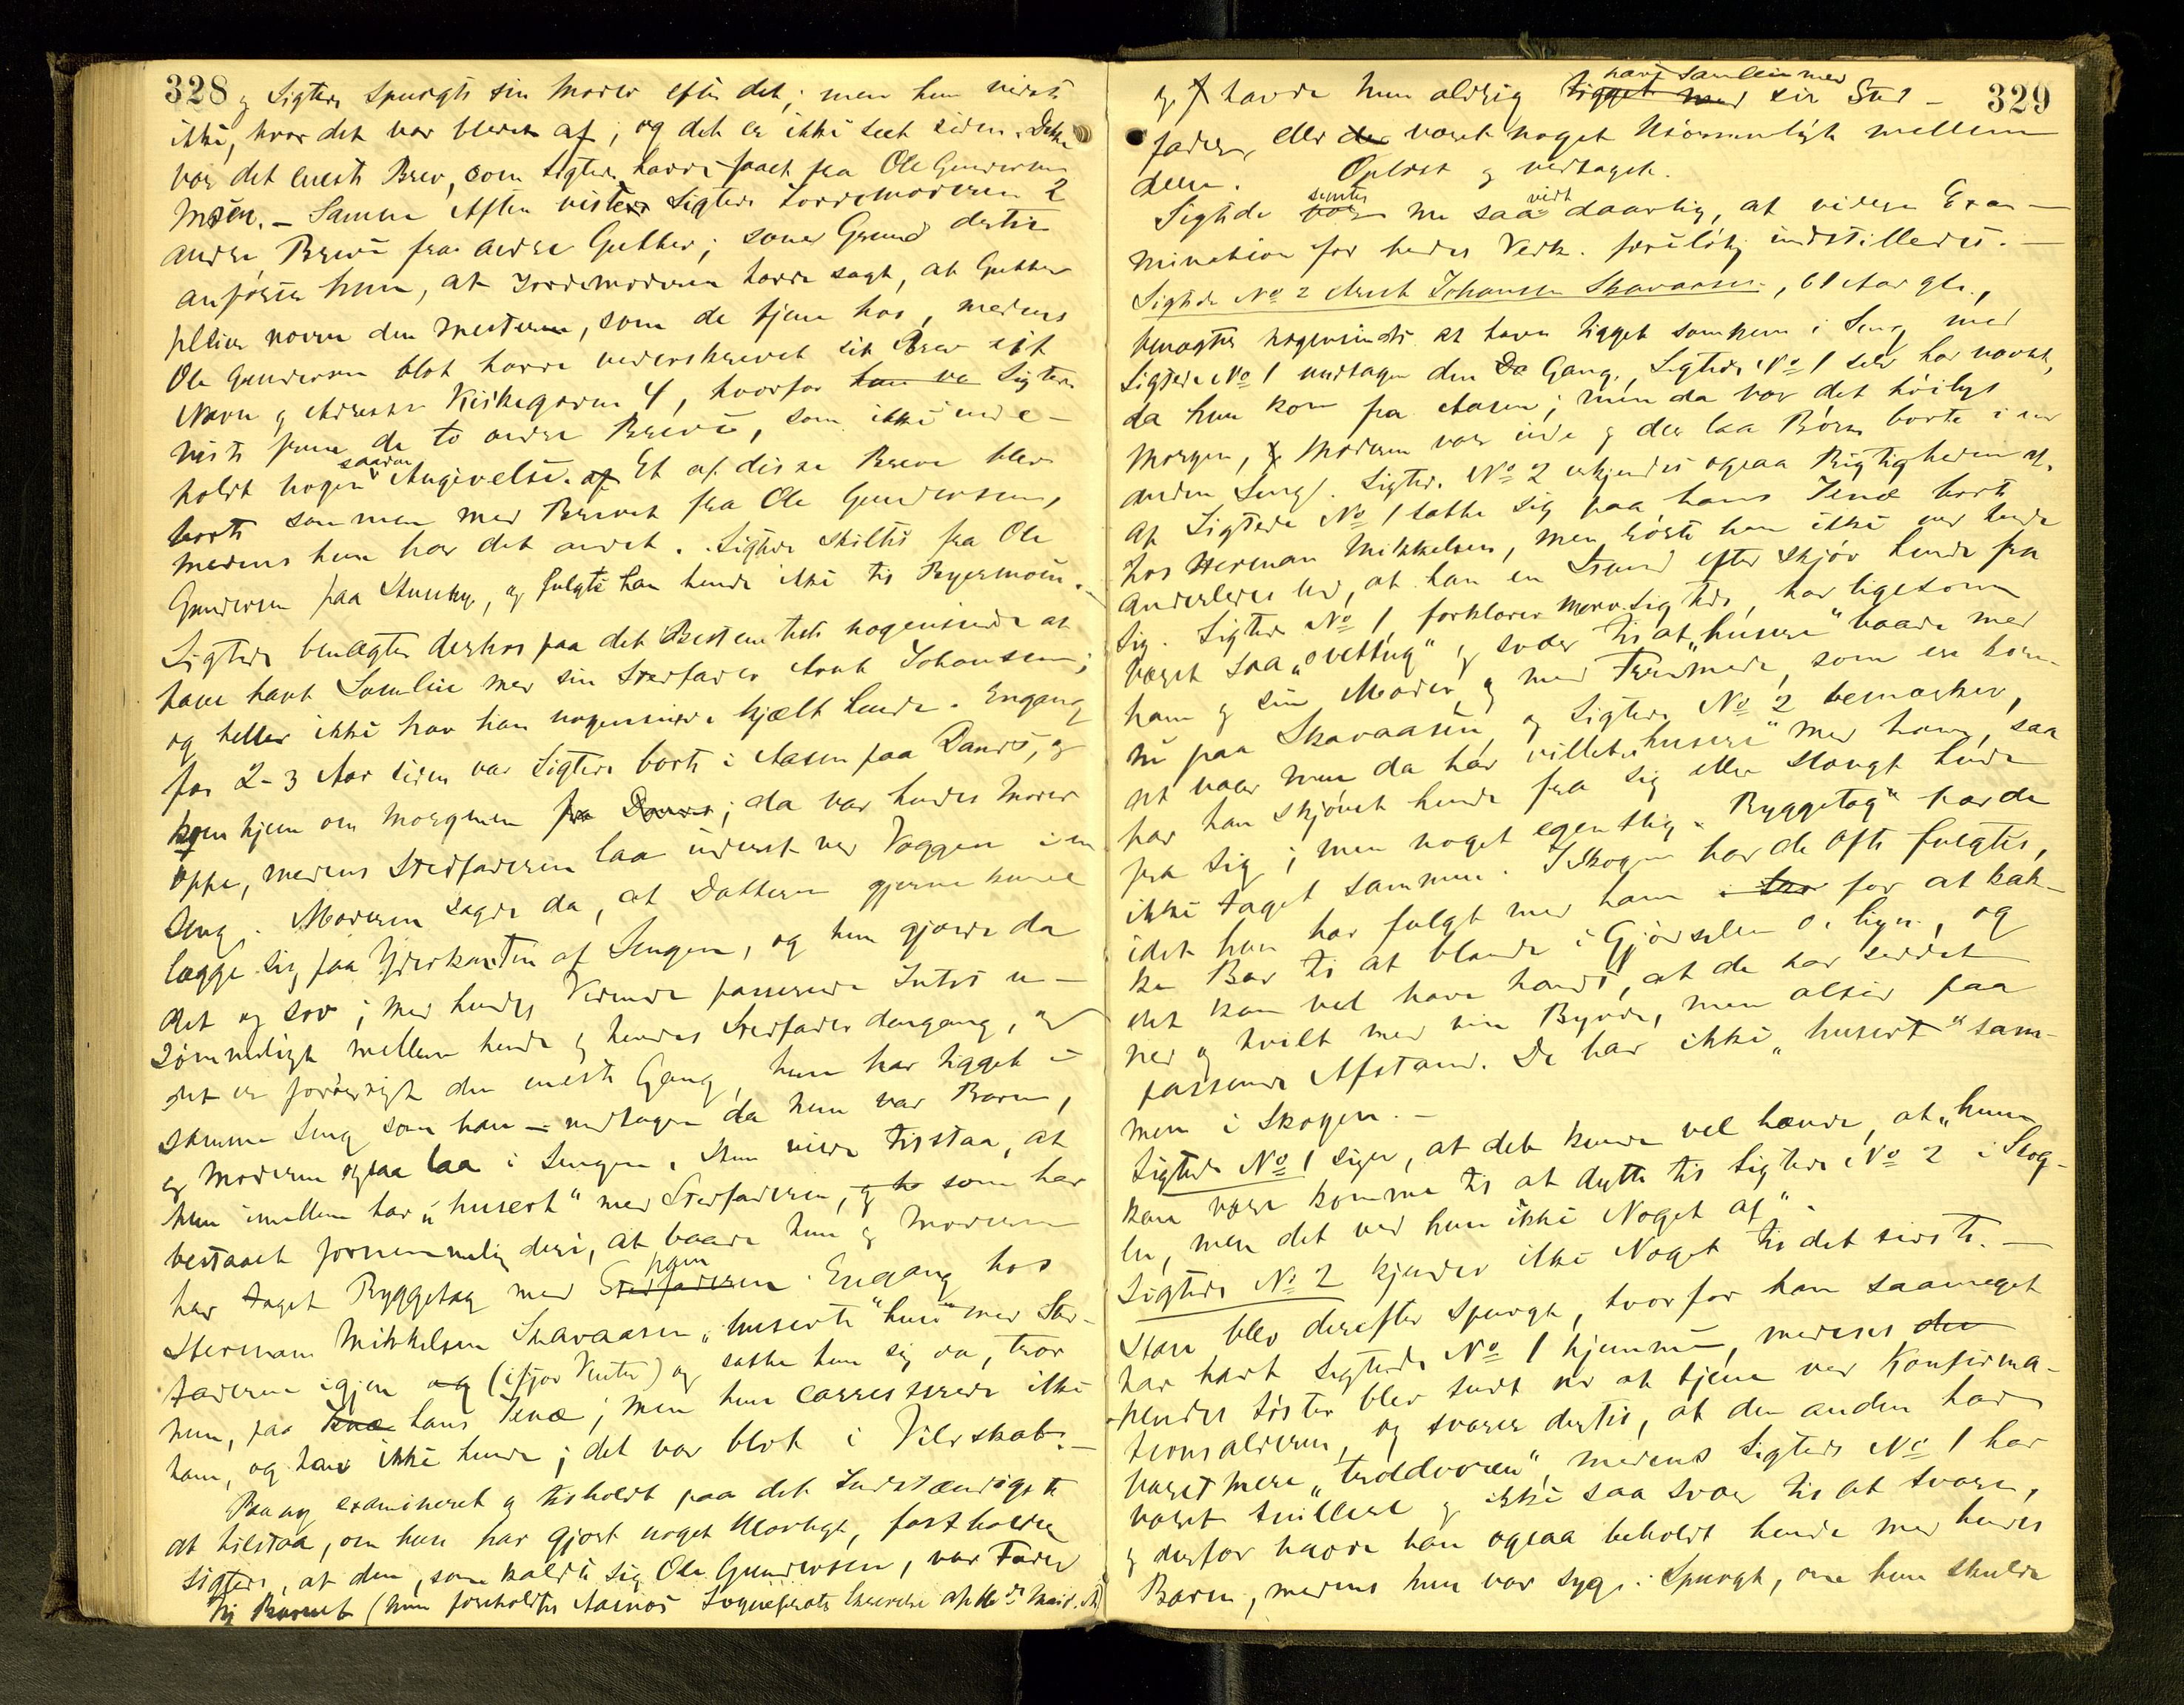 328
og Sigtede spurgte sin Moder efter det; men hun vidste
ikke, hvor det var bleven af; og det er ikke seet siden. Dette
var det eneste Brev, som Sigtede havde faaet fra Ole Gundersen
Moen. – Samme Aften viste Sigtede Jordemoderen 2
andre Breve fra andre Gutter; som Grund dertil
anfører hun, at Jordemoderen havde sagt, at Gutter
pleier nævne den Mesteren, som de tjene hos, medens
Ole Gundersen blot havde underskrevet sit Brev sit
Navn og Adresse Kirkegaden 4, hvorfor han va Sigtede
viste frem de to andre Breve, som ikke inde-
holdt nogen saadan Angivelse. af Et af disse Breve blev
borte sammen med Brevet fra Ole Gundersen,
medens hun har det andet. Sigtede skiltes fra Ole
Gundersen paa Huseby, og fulgte han hende ikke til Byermoen.
Sigtede benægter derhos paa det Bestemteste nogensinde at
have havt Samleie med sin Stedfader Arnt Johansen;
og heller ikke har han nogensinde kjælt hende. Engang
for 2-3 Aar siden var Sigtede borte i Aasen paa Dands, og
kom hjem om Morgenen fra Dands; da var hendes Moder
oppe, medens Stedfaderen laa inderst ved Væggen i en
Seng. Moderen sagde da, at Datteren gjerne kunde
lægge sig paa Yderkanten af Sengen, og hun gjorde da
det og sov; med hendes Vidende passerede Intet u-
sømmeligt mellem hende og hendes Stedfader dengang, og
det er forøvrigt den eneste Gang, hun har ligget i
samme Seng som han – undtagen da hun var Barn,
og Moderen ogsaa laa i Sengen. Hun vilde tilstaa, at
hun imellem har „husert“ med Stedfaderen, og ha som har
bestaaet fornemmelig deri, at baade hun og Moderen
har taget Ryggetag med Stedfaderen ham. Engang hos
Herman Mikkelsen Skavaasen „huserte“ hun med Sted-
faderen igjen og (ifjor Vinter) og satte hun sig da, tror
hun, paa Knæ hans Knæ; men hun caresserede ikke
ham, og han ikke hende; det var blot i Vildskab. –
Paany examineret og tilholdt paa det Indstændigste
at tilstaa, om hun har gjort noget Ulovligt, fastholder
Sigtede, at den, som kaldte sig Ole Gundersen, var Fader
til Barnet (hun foreholdtes Aasnes
329
og havde hun aldrig ligget med havt Samleie med sin Sted-
fader, eller de været noget Usømmeligt mellem
dem. Oplæst og vedtaget.
Sigtede var syntes nu saa vidt daarlig, at videre Exa-
mination for hendes Vedk. foreløbig indstilledes. –
Sigtede No 2 Arnt Johansen Skavaasen, 61 Aar gl.,
benægter nogensinde at have ligget sammen i Seng med
Sigtede No 1 undtagen den Da Gang, Sigtede No 1 selv har nævnt,
da hun kom fra Aasen; men da var det høilys
Morgen, & Moderen var inde og der laa Børn borte i en
anden Seng. Sigtede No 2 erkjendes ogsaa Rigtigheden af,
at Sigtede No 1 satte sig paa hans Knæ borte
hos Herman Mikkelsen, men rørte han ikke ved hende
anderledes end, at han en Stund efter skjøv hende fra
sig. Sigtede No 1 forklarer Medsigtede, har ligesom
været saa „ovettug“ og svær til at „husere“ baade med
ham og sin Moder og med Fremmede, som er kom-
ne paa Skavaasen, og Sigtede No 2 bemærker,
at naar hun da har villet „husere“ med ham, saa
har han skjøvet hende fra sig eller slængt hende
fra sig; men noget egentlig „Ryggetag“ har de
ikke taget sammen. I Skogen har de ofte fulgtes,
idet hun har fulgt med ham i Sko for at bak-
ke Bar til at blande i Gjødselen o. lign., og
det kan vel have hændt, at de har siddet
ned og hvilt med sin Byrde, men altid paa
passende Afstand. De har ikke „husert“ sam-
men i Skogen. –
Sigtede No 1 siger, at det kunde vel hænde, at „hun
kan være komme til at dytte til Sigtede No 2 i Skog-
en, men det ved hun ikke Noget af“.
Sigtede No 2 kjender ikke Noget til det sidste. –
Han blev derefter spurgt, hvorfor han saameget
har havt Sigtede No 1 hjemme, medens den
hendes Søster blev sendt ud at tjene ved Konfirma-
tionsalderen, og svarer dertil, at den anden har
været mere „troldvoren“, medens Sigtede No 1 har
været snillere og ikke saa svær til at svare,
og derfor havde han ogsaa beholdt hende med hendes
Barn, medens hun var syg. Spurgt, om hun skulde